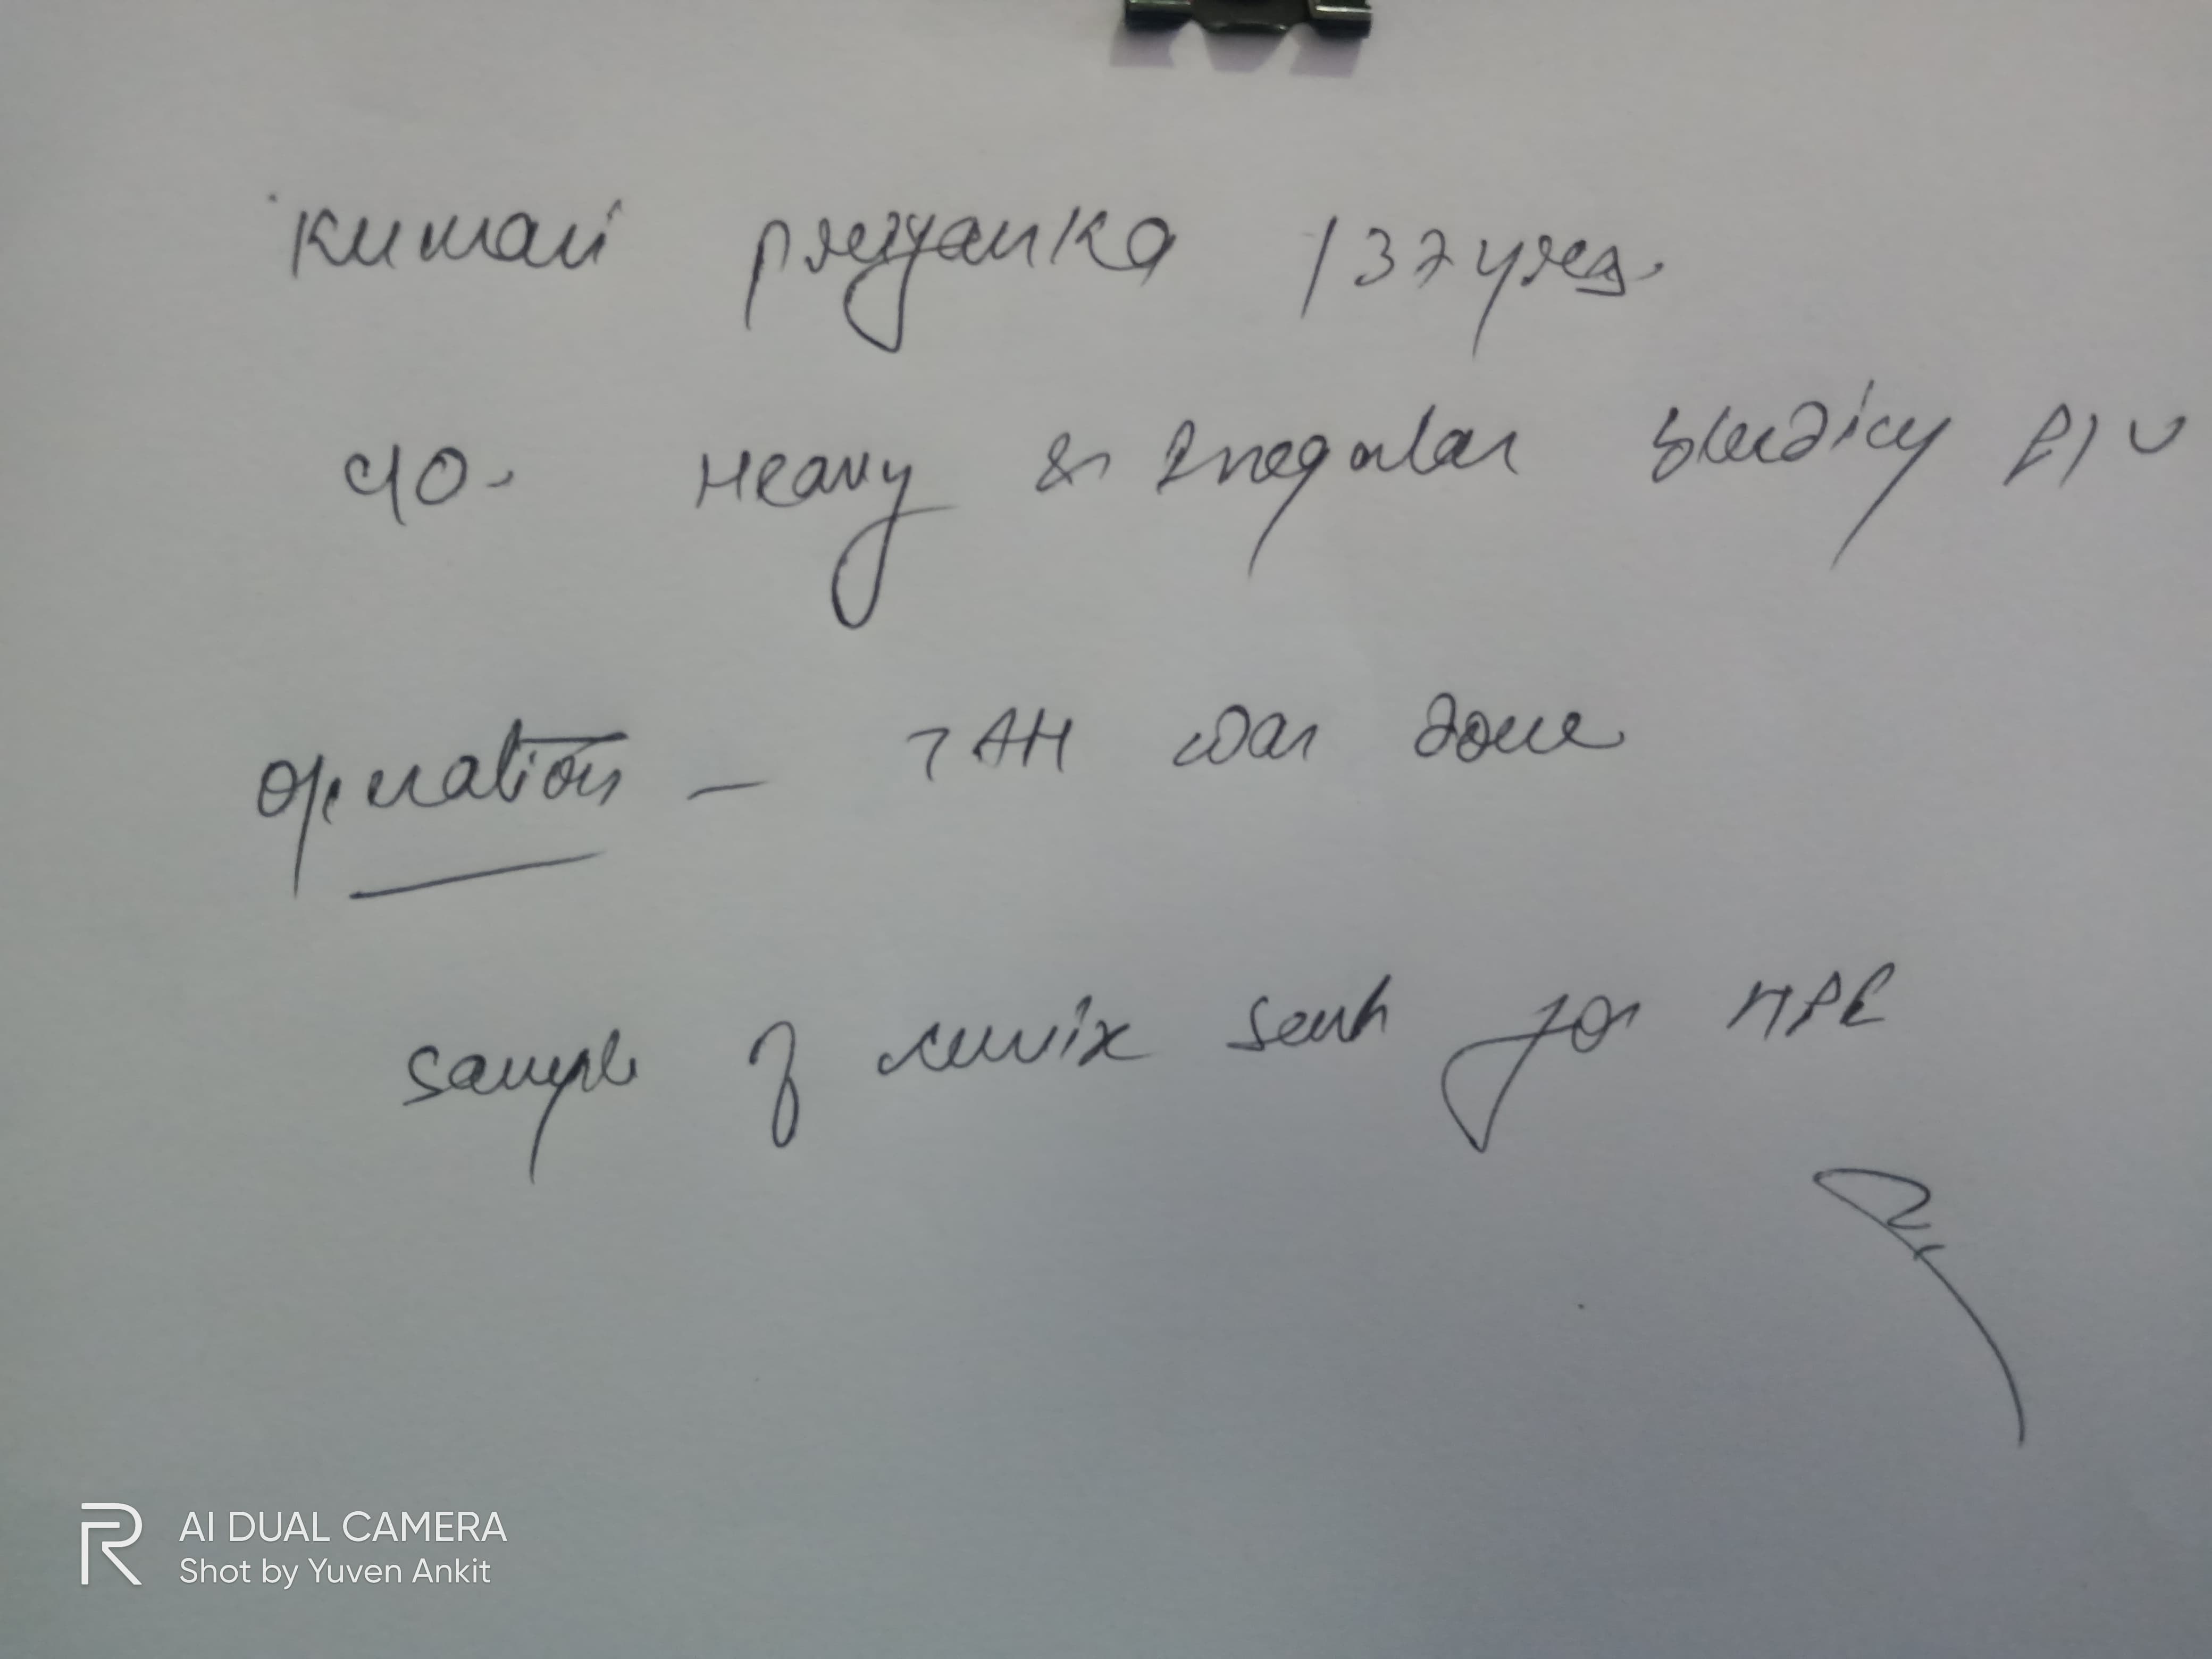 Kumari Preyanka / 32 yrs.
C/O. Heavy & Irregular bleeding P/V
Operation - TAH was done
Sample of cervix sent for HPE
R
AI DUAL CAMERA
Shot by Yuven Ankit